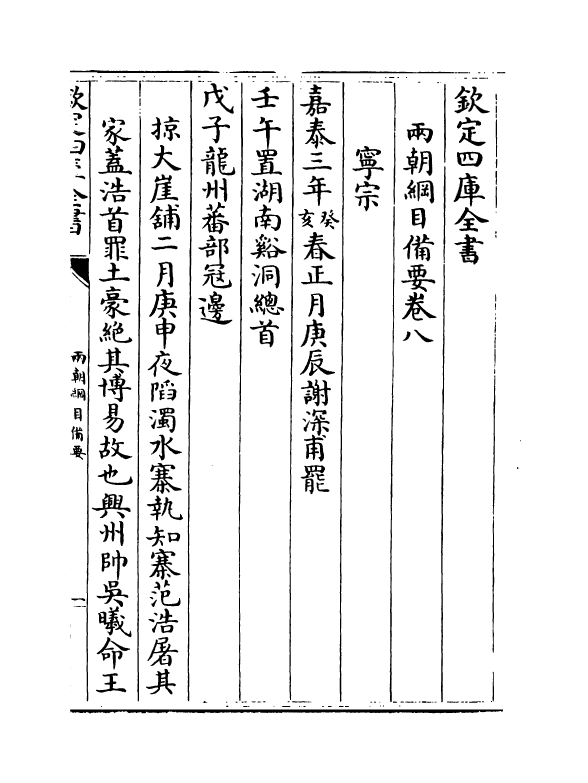 欽定四庫全書
兩朝綱目備要卷八
寧宗
嘉泰三年癸亥春正月庚辰謝深甫罷
壬午置湖南谿洞總首
戊子龍州蕃部冦邊
掠大崖舖二月庚申夜䧟濁水寨執知寨范浩屠其
家蓋浩首罪土豪絶其博易故也興州帥吳曦命王
欽定四庫全書
兩朝綱目備要
一